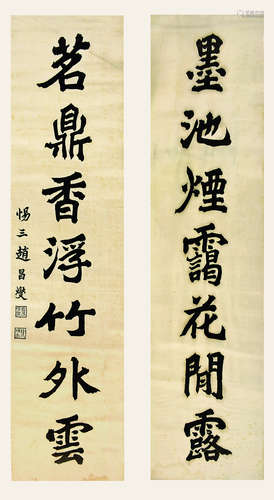 墨池煙靄花閒露
茗鼎香浮竹外雲
惕三趙昌燮